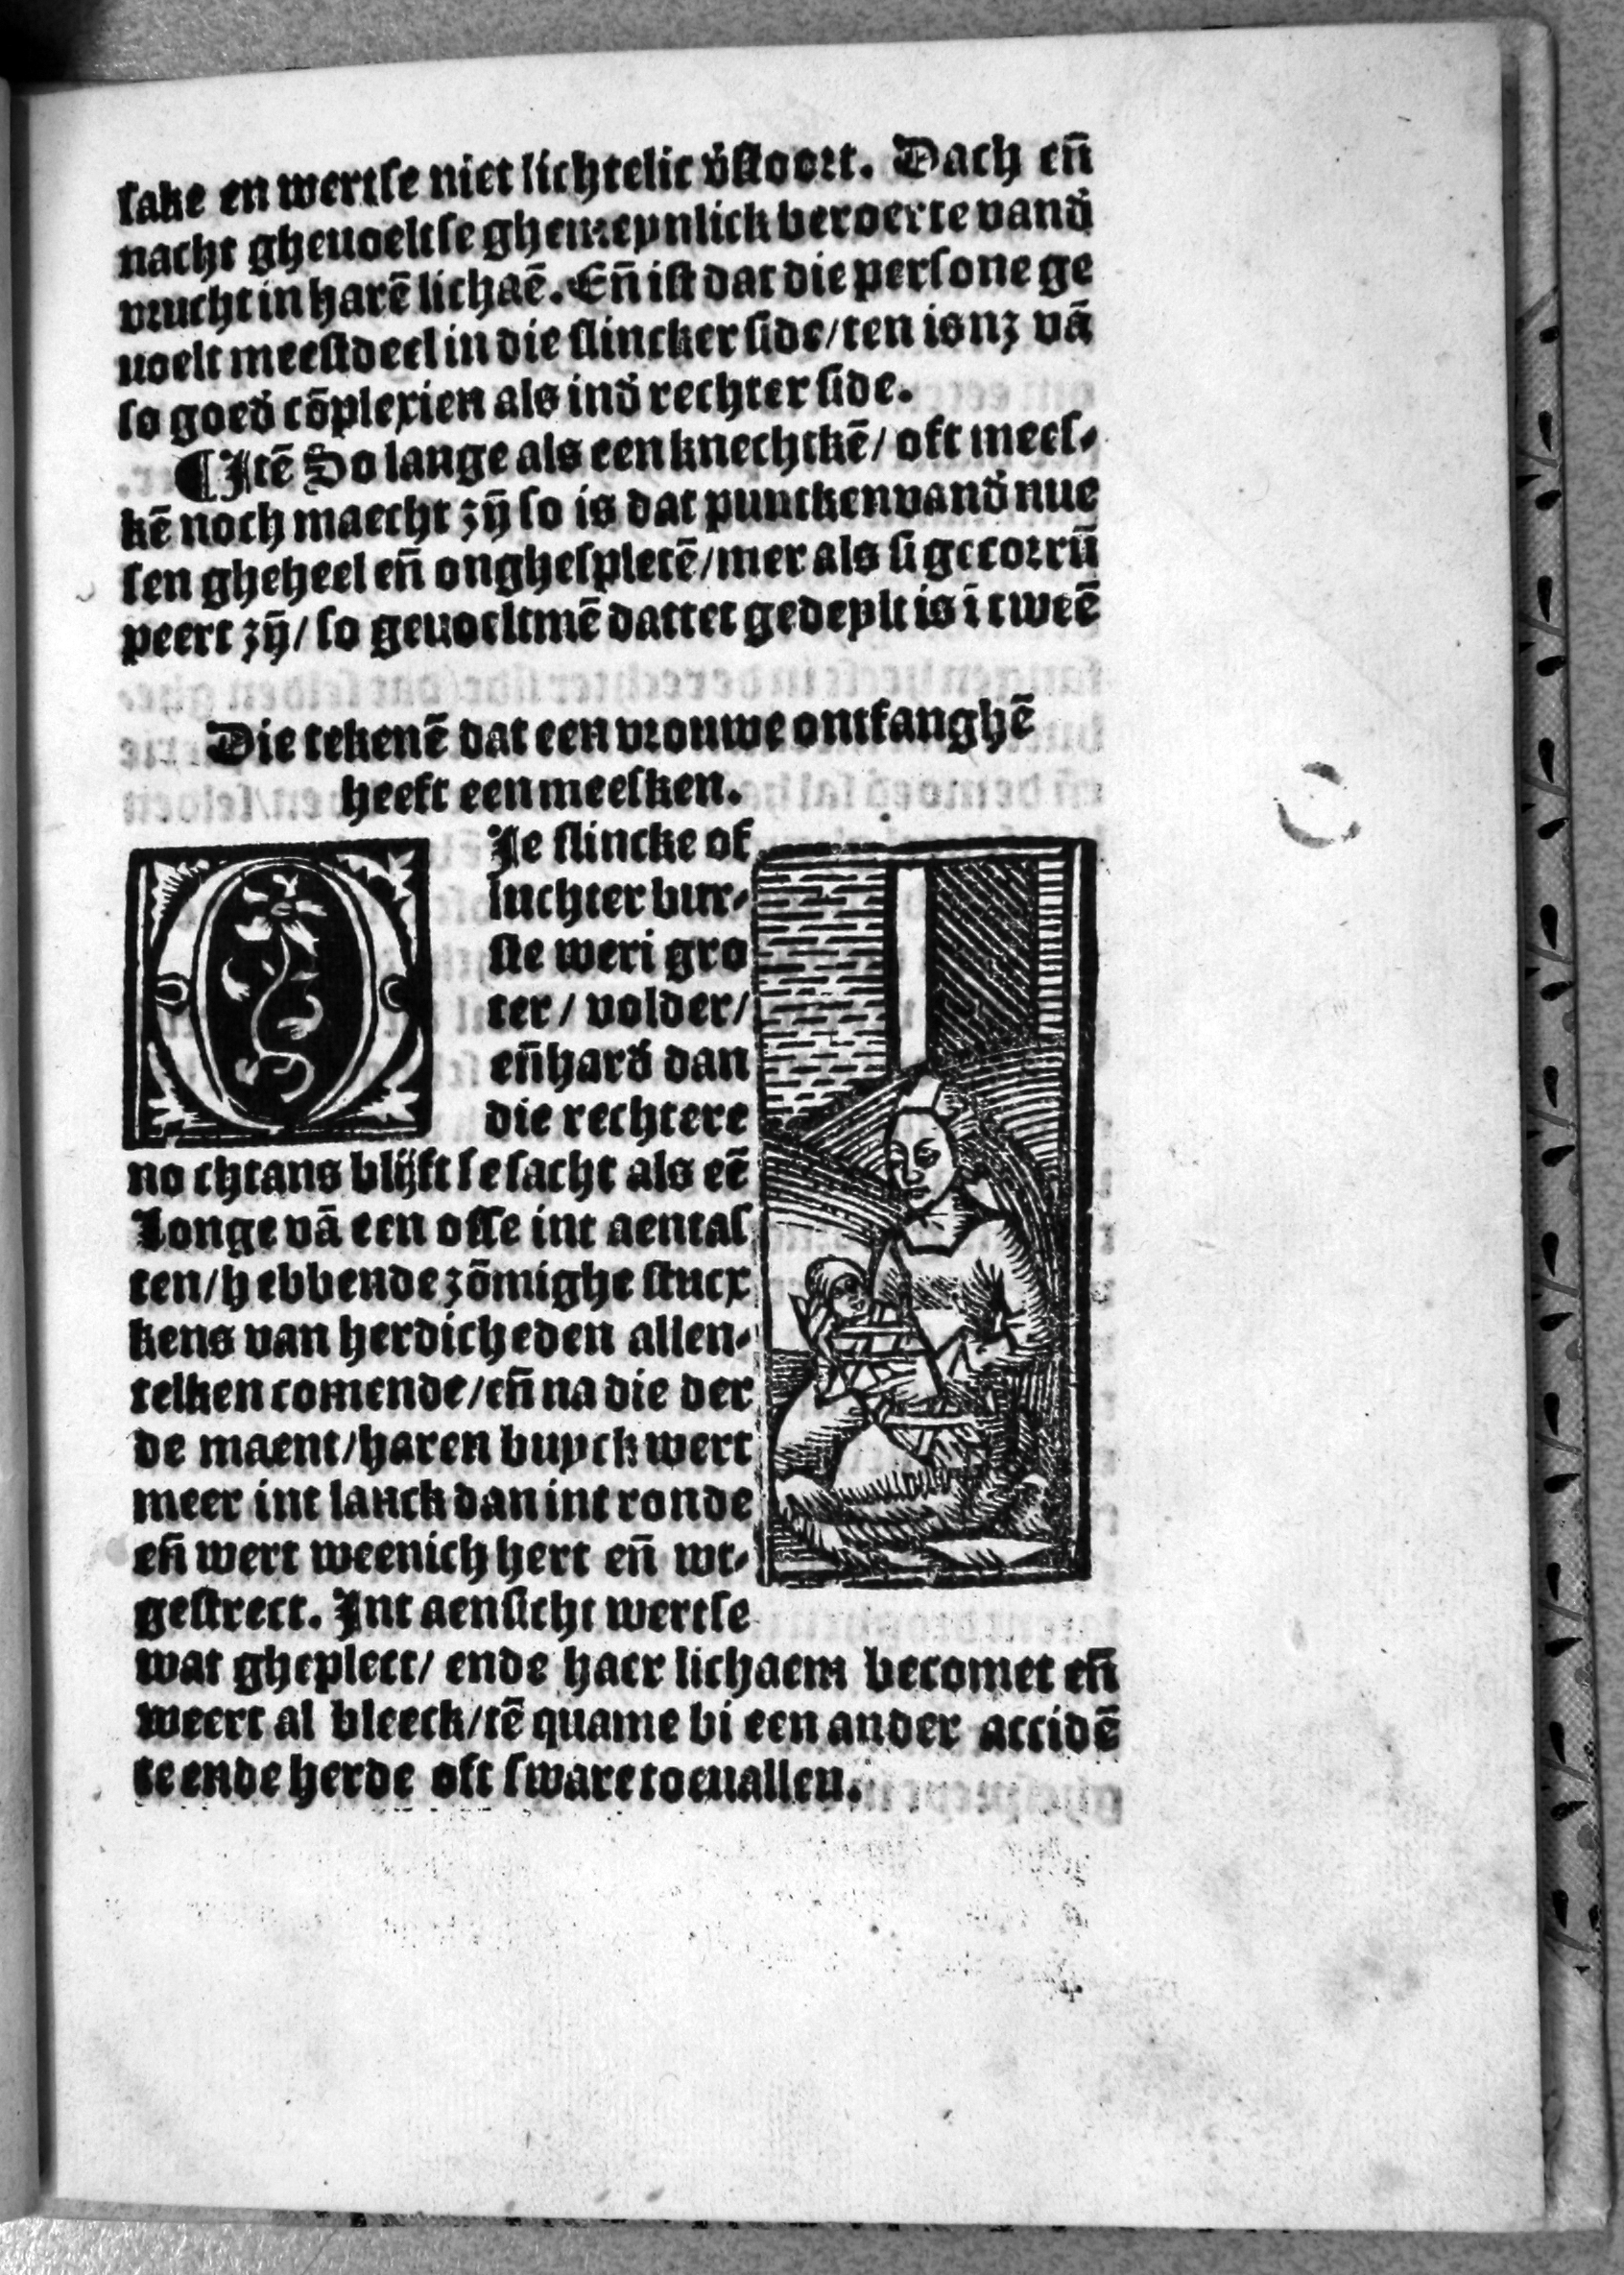 sake en wertse niet lichtelic v̄stoort. Dach en̄
nacht gheuoeltse ghemeynlick beroerte vand̄
vrucht in harē lichaē. En̄ ist dat die persone ge
uoelt meestdeel in die slincker side/ten is nz vā
so goed̄ cōplexien als ind̄ rechter side.
¶Itē So lange als een knechtkē/ oft mees⸗
kē noch maecht zȳ so is dat punctken vand̄ nue
sen gheheel en̄ onghespletē/mer als si gecorrū
peert zȳ/ so geuoeltmē dattet gedeylt is ī tweē
Die tekenē dat een vrouwe ontfanghē
heeft een meesken.
DIe slincke of
luchter bur⸗
ste wert gro
ter/ volder/
en̄ hard̄ dan
die rechtere
no chtans blijft se sacht als eē
Longe vā een osse int aentas
ten/hebbende zōmighe stucx
kens van herdicheden allen⸗
telken comende/en̄ na die der
de maent/haren buyck wert
meer int lanck dan int ronde
en̄ wert weenich hert en̄ wt⸗
gestrect. Int aensicht wertse
wat gheplect/ ende haer lichaem becomet en̄
weert al bleeck/tē quame bi een ander accidē
te ende herde oft sware toeuallen.